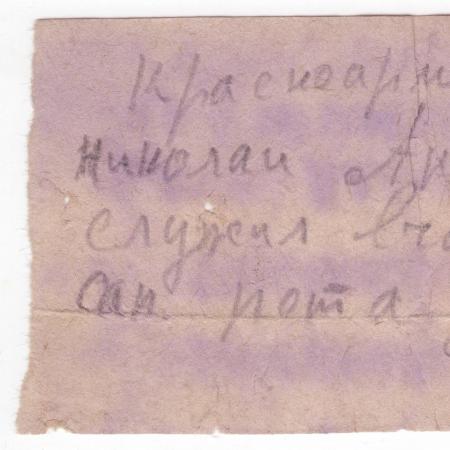 Красноарм
Николай Ан
служил в ча
сан. рота